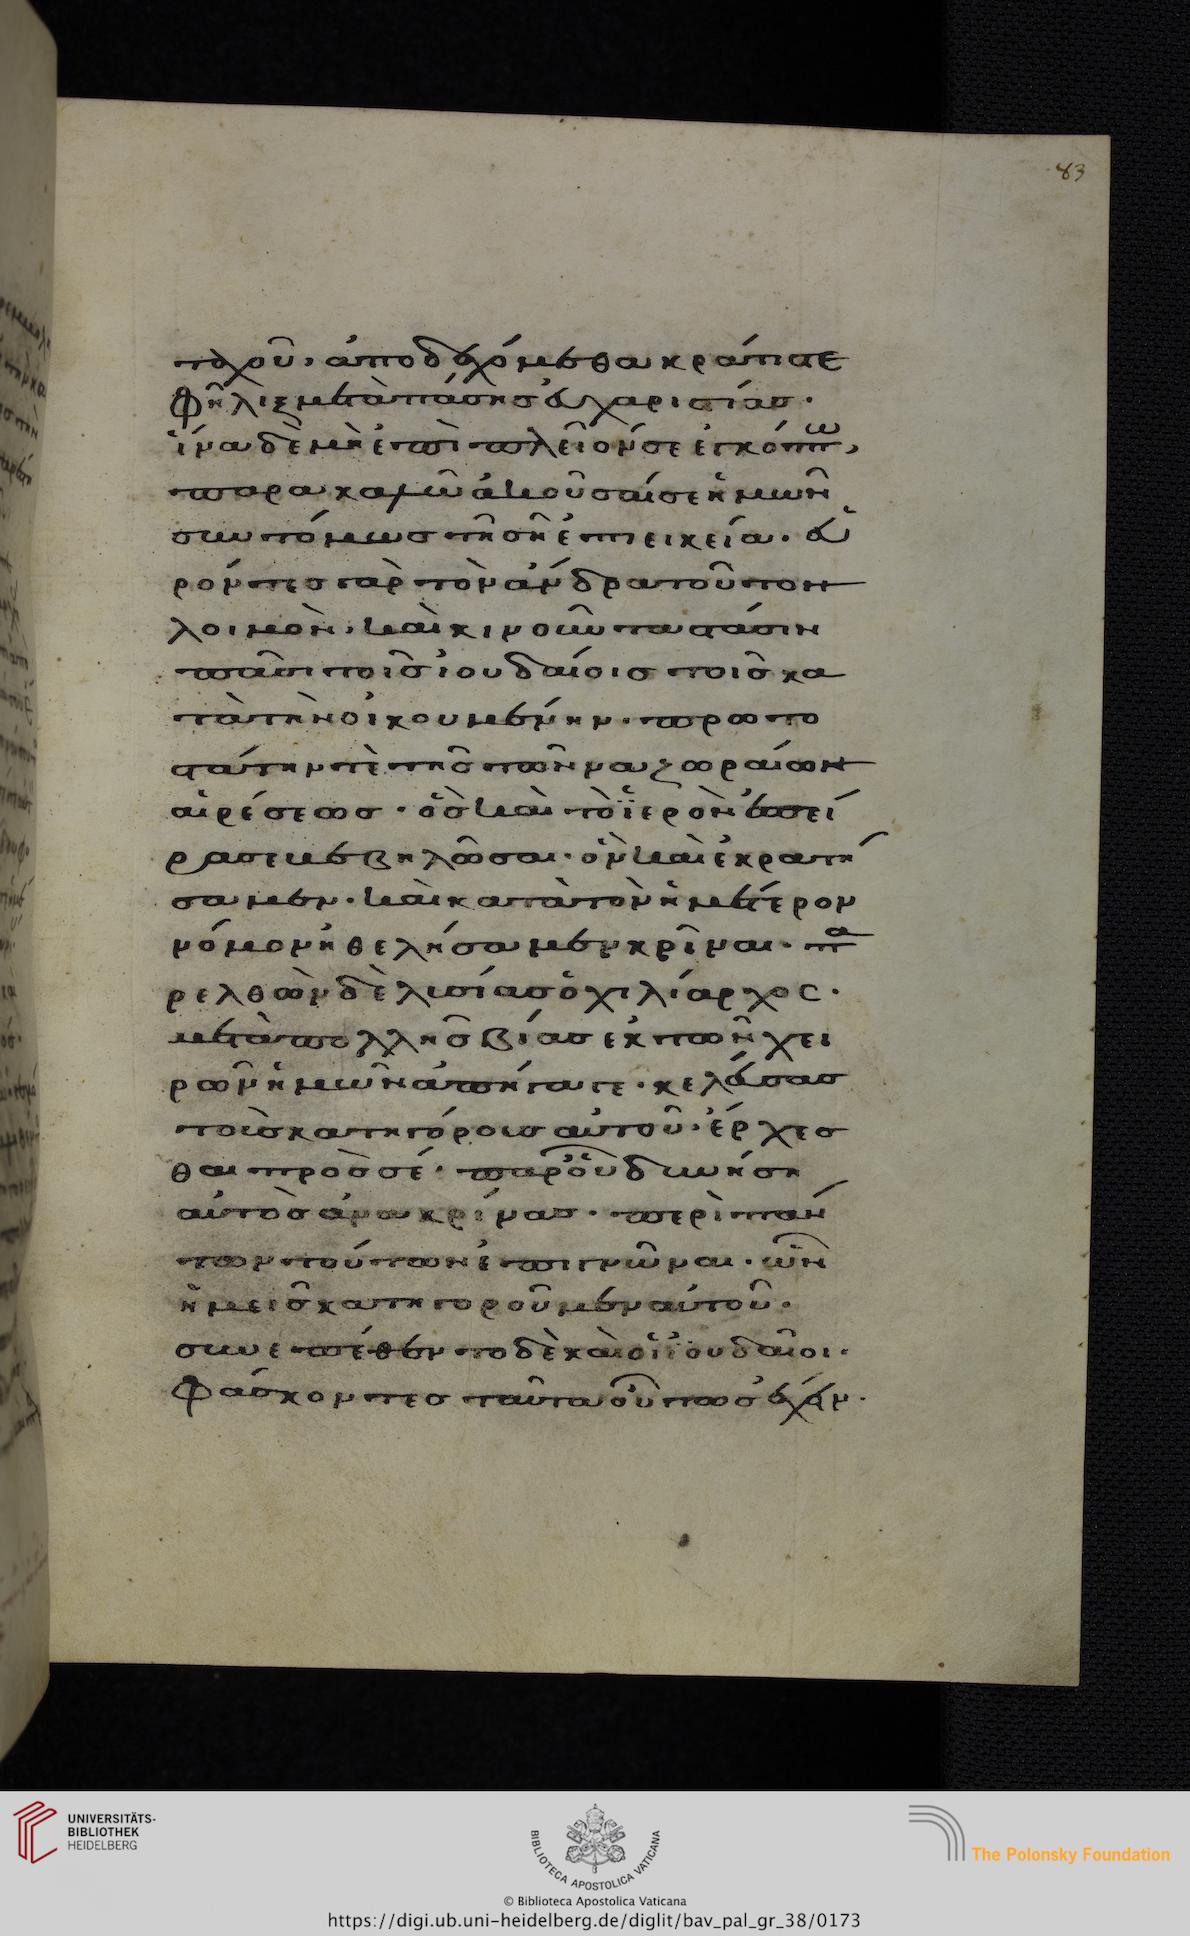 83
ταχοῦ, ἀποδεχόμεθα κράτιστε
Φῆλιξ μετὰ πάσης εὐχαριστίας·
ἵνα δὲ μὴ ἐπὶ πλεῖόν σε ἐγκόπτω,
παρακαλῶ ἀκοῦσαί σε ἡμῶν
συντόμως τῇ σῇ ἐπιεικεία· εὑ
ρόντες γὰρ τὸν ἄνδρα τοῦτον
λοιμὸν, καὶ κινοῦντα στάσιν
πᾶσι τοῖς ἰουδαίοις τοῖς κα
τὰ τὴν οἰκουμένην· πρωτο
στάτην τὲ τῆς τῶν ναζωραίων
αἱρέσεως· ὃς καὶ τὸ ἱερὸν ἐπεί
ρασε βεβηλῶσαι· ὃν καὶ ἐκρατή
σαμεν· καὶ κατὰ τὸν ἡμέτερον
νόμον ἠθελήσαμεν κρῖναι· πα
ρελθὼν δὲ λυσίας ὁ χιλίαρχος·
μετὰ πολλῆς βίας ἐκ τῶν χει
ρῶν ἡμῶν ἀπήγαγε· κελεύσας
τοὺς κατηγόρους αὐτοῦ· ἔρχεσ
θαι πρὸς σέ· παρ' οὗ δυνήση
αὐτὸς ἀνακρίνας· περὶ πάν
των τούτων ἐπιγνῶναι· ὧν
ἡμεῖς κατηγοροῦμεν αὐτοῦ·
συνεπέθεντο δὲ καὶ οἱ ἰουδαῖοι·
Φάσκοντες ταῦτα οὕτως ἔχειν·
UNIVERSITÄTS-
BIBLIOTHEK
HEIDELBERG
BIBLIOTECA APOSTOLICA VATICANA
The Polonsky Foundation
© Biblioteca Apostolica Vaticana
https://digi.ub.uni-heidelberg.de/diglit/bav_pal_gr_38/0173